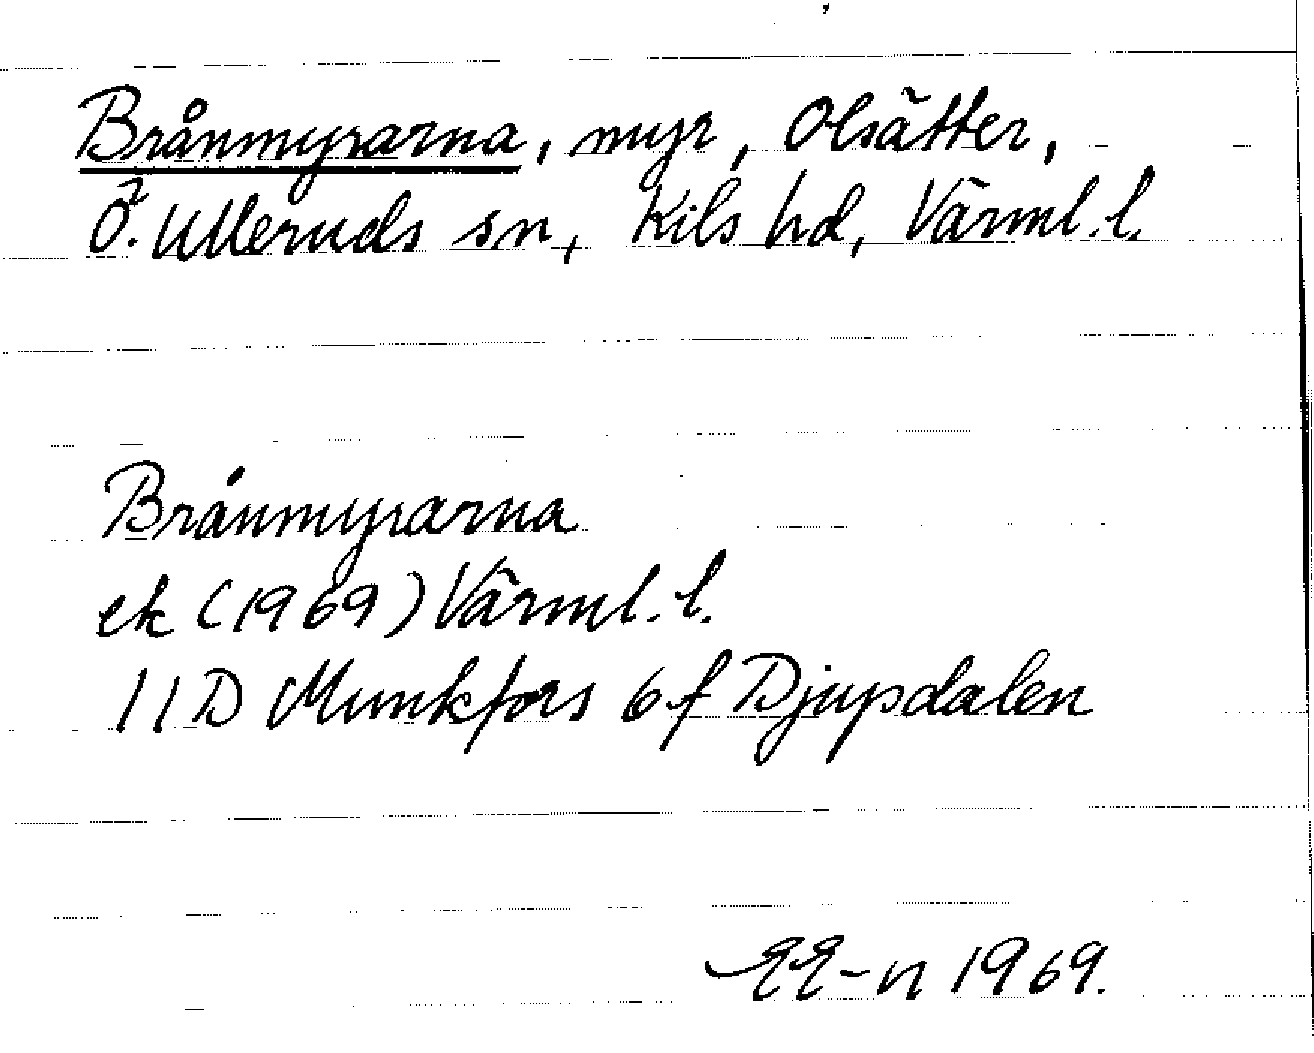 Brånmyrarna, myr, Olsätter,
Ö. Ulleruds sn, Kils hd, Värml. l.
Brånmyrarna
ek (1969) Värml. l.
11D Munkfors 6f Djupdalen
EE-n 1969.